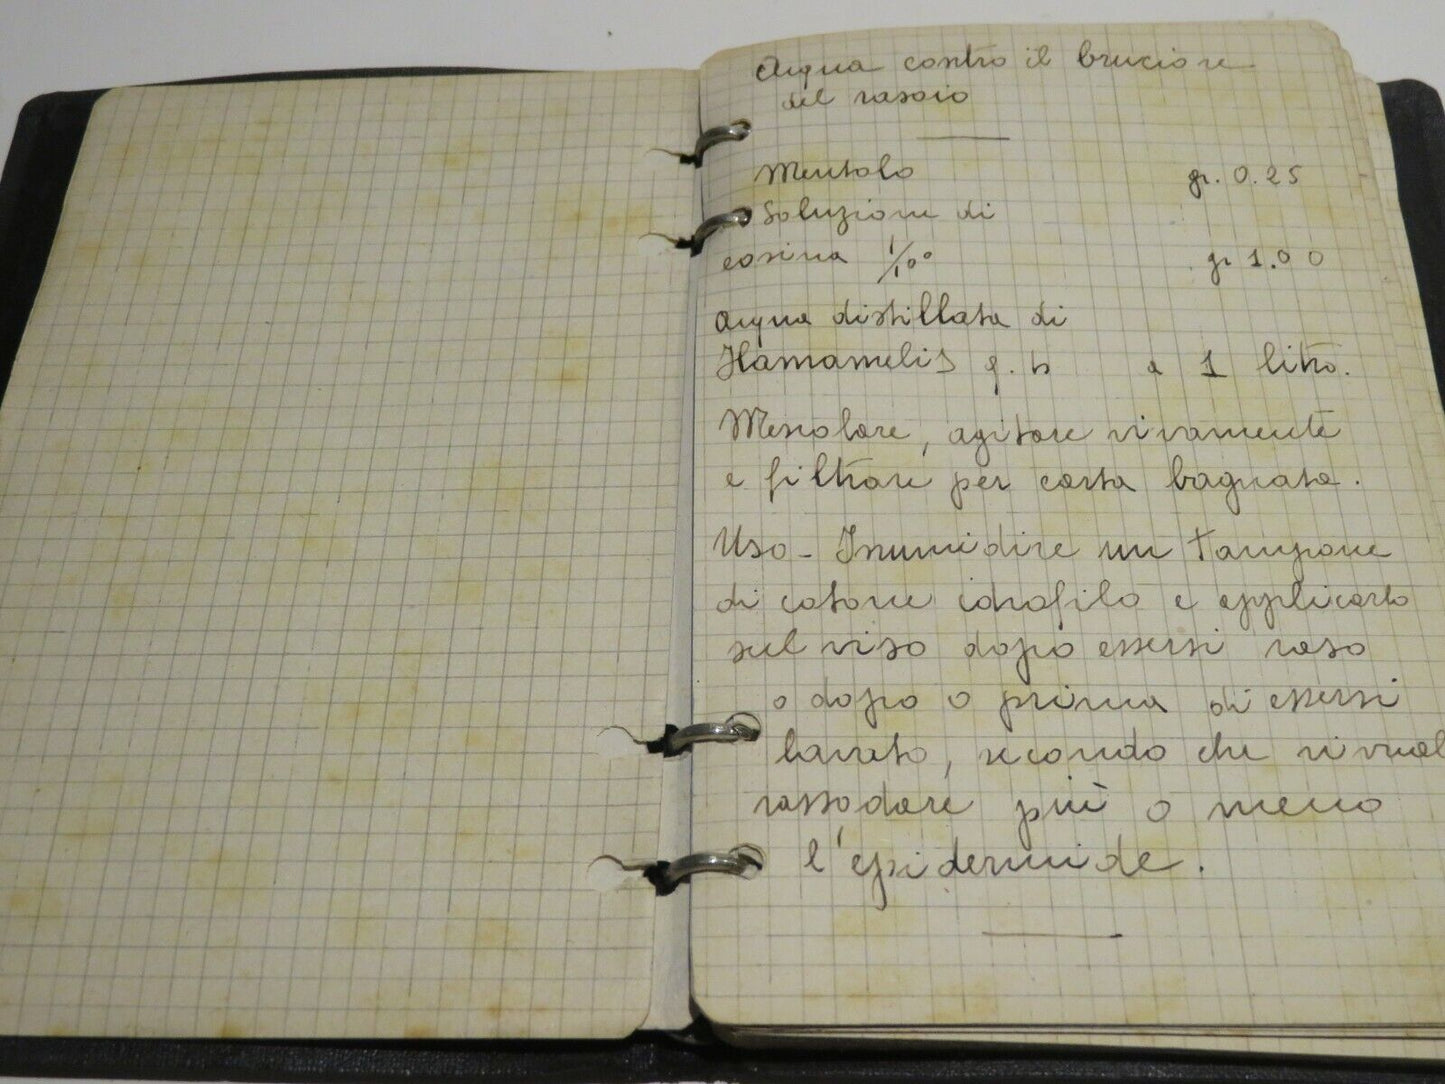 Acqua contro il bruciore
del rasoio
Mentolo gr. 0.25
Soluzione di
eosina 1/100 gr 1.00
Acqua distillata di
Hamamelis q. b a 1 litro.
Mescolare, agitare vivamente
e filtrare per carta bagnata.
Uso - Inumidire un tampone
di cotone idrofilo e applicarlo
sul viso dopo essersi raso
o dopo o prima di essersi
lavato, secondo che si vuol
rassodare più o meno
l'epidermide.